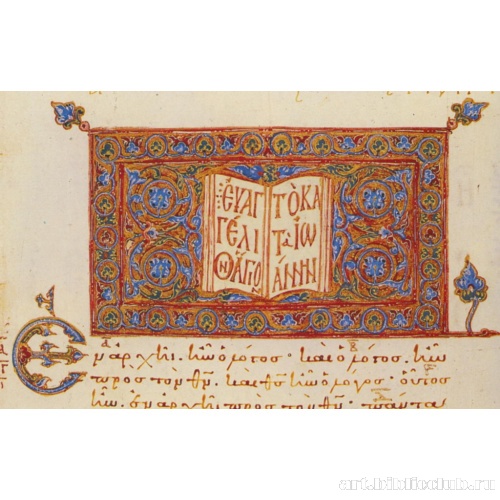 ΕΥΑΓ
ΓΕΛΙ
ΟΝ ΑΓΙΟ
ΤὸΚΑ
Τὰ ΙΩ
ΆΝΝΗΝ
Ἐν ἀρχῆ ἦν ὁ λόγος· καὶ ὁ λόγος ἦν
πρὸς τὸν θν· καὶ θς ἦν ὁ λόγος· οὗτος
ἦν ἐν ἀρχῆ πρὸς τὸν θν· πάντα
art.biblioclub.ru